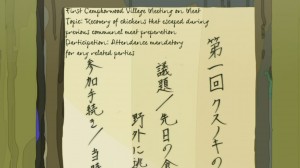 First Camphorwood Village Meeting on Meat
Topic: Recovery of chickens that escaped during
previous communal meat preparation.
Participation: Attendance mandatory
for any related parties
第一回クスノキの
議題／先日の合
野外に逃
参加手続き／当